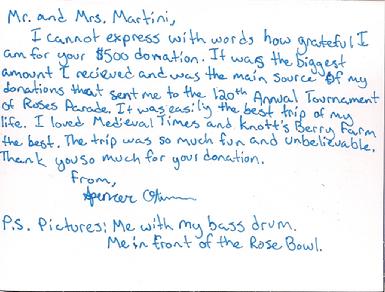 Mr. and Mrs. Martini,
I cannot express with words how grateful I
am for your $500 donation. It was the biggest
amount I recieved and was the main source of my
donations that sent me to the 120th Annual Tournament
of Roses Parade. It was easily the best trip of my
life. I loved Medieval Times and Knott's Berry Farm
the best. The trip was so much fun and unbelievable.
Thank you so much for your donation.
From,
Spencer
P.S. Pictures: Me with my bass drum.
Me in front of the Rose Bowl.